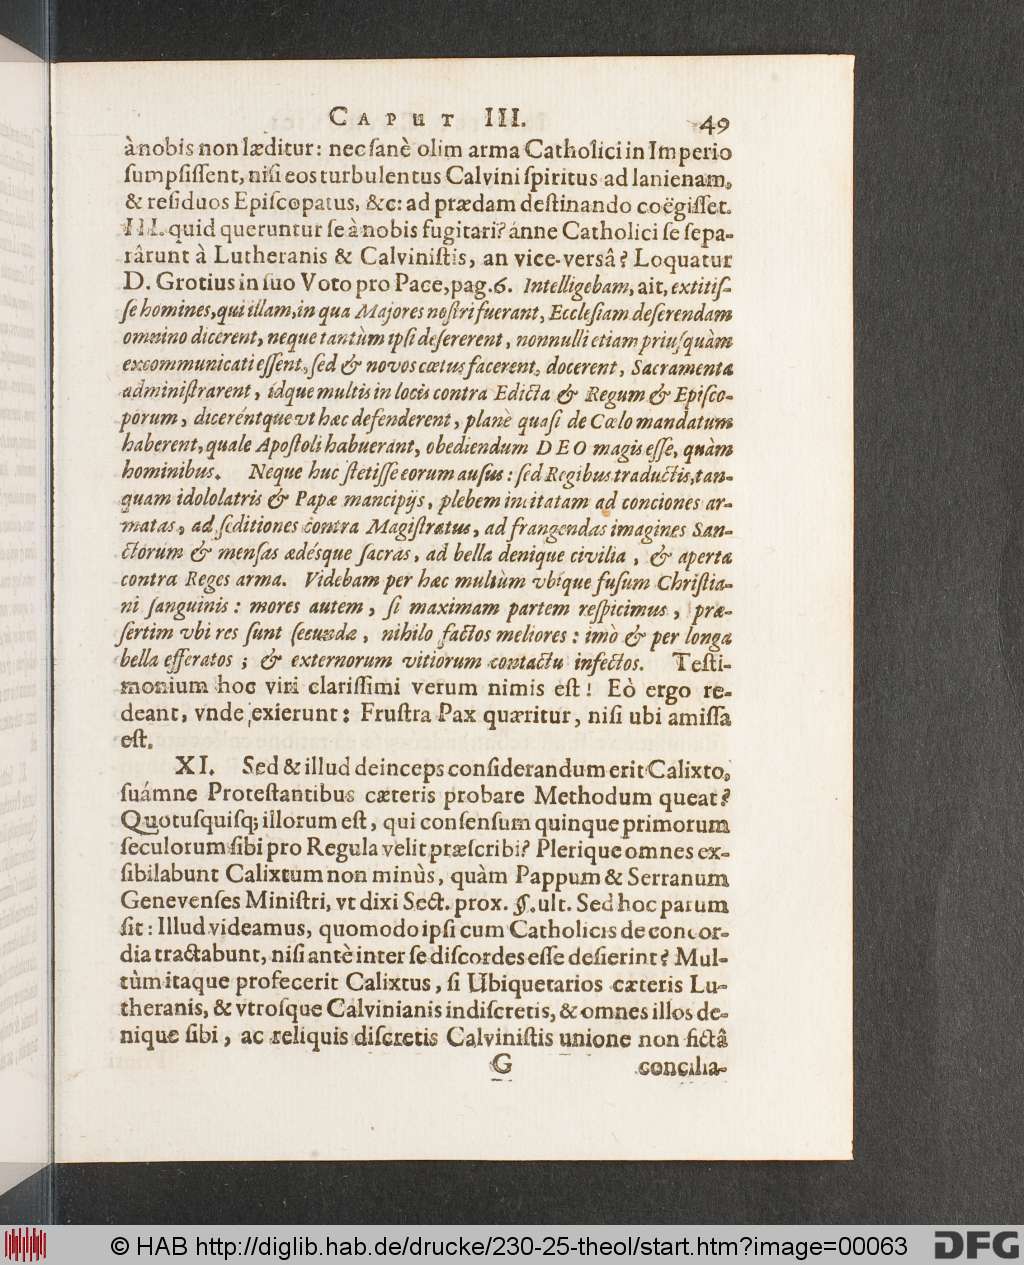 CAPUT III. 49
à nobis non læditur: nec sanè olim arma Catholici in Imperio
ſumpſiſſent, niſi eos turbulentus Calvini ſpiritus ad lanienam,
& reſiduos Epiſcopatus, &c: ad prædam deſtinando coëgiſſet.
III. quid queruntur ſe à nobis fugitari? ánne Catholici ſe ſepa-
rârunt à Lutheranis & Calviniſtis, an vice-versâ? Loquatur
D. Grotius in ſuo Voto pro Pace, pag. 6. Intelligebam, ait, extitiſ-
ſe homines, qui illam, in qua Majores noſtri fuerant, Eccleſiam deſerendam
omnino dicerent, neque tantùm ipſi deſererent, nonnulli etiam priuſquàm
excommunicati eſſent, ſed & novos cœtus facerent, docerent, Sacramenta
adminiſtrarent, idque multis in locis contra Edicta & Regum & Epiſco-
porum, diceréntque vt hæc defenderent, planè quaſi de Cœlo mandatum
haberent, quale Apoſtoli habuerant, obediendum DEO magis eſſe, quàm
hominibus. Neque huc ſtetiſſe eorum auſus: ſed Regibus traductis, tan-
quam idololatris & Papæ mancipijs, plebem incitatam ad conciones ar-
matas, ad ſeditiones contra Magiſtratus, ad frangendas imagines San-
ctorum & menſas ædésque ſacras, ad bella denique civilia, & aperta
contra Reges arma. Videbam per hæc multùm vbique fuſum Chriſtia-
ni ſanguinis: mores autem, ſi maximam partem reſpicimus, præ-
ſertim vbi res ſunt ſecundæ, nihilo factos meliores: imò & per longa
bella efferatos; & externorum vitiorum contactu infectos. Teſti-
monium hoc viri clariſſimi verum nimis eſt! Eò ergo re-
deant, vnde exierunt: Fruſtra Pax quæritur, niſi ubi amiſſa
eſt.
XI. Sed & illud deinceps conſiderandum erit Calixto,
ſuámne Proteſtantibus cæteris probare Methodum queat?
Quotuſquiſq; illorum eſt, qui conſenſum quinque primorum
ſeculorum ſibi pro Regula velit præſcribi? Plerique omnes ex-
ſibilabunt Calixtum non minùs, quàm Pappum & Serranum
Genevenſes Miniſtri, vt dixi Sect. prox. §. ult. Sed hoc parum
ſit: Illud videamus, quomodo ipſi cum Catholicis de concor-
dia tractabunt, niſi antè inter ſe diſcordes eſſe deſierint? Mul-
tùm itaque profecerit Calixtus, ſi Ubiquetarios cæteris Lu-
theranis, & vtroſque Calvinianis indiſcretis, & omnes illos de-
nique ſibi, ac reliquis diſcretis Calviniſtis unione non fictâ
G concilia-
© HAB http://diglib.hab.de/drucke/230-25-theol/start.htm?image=00063 DFG